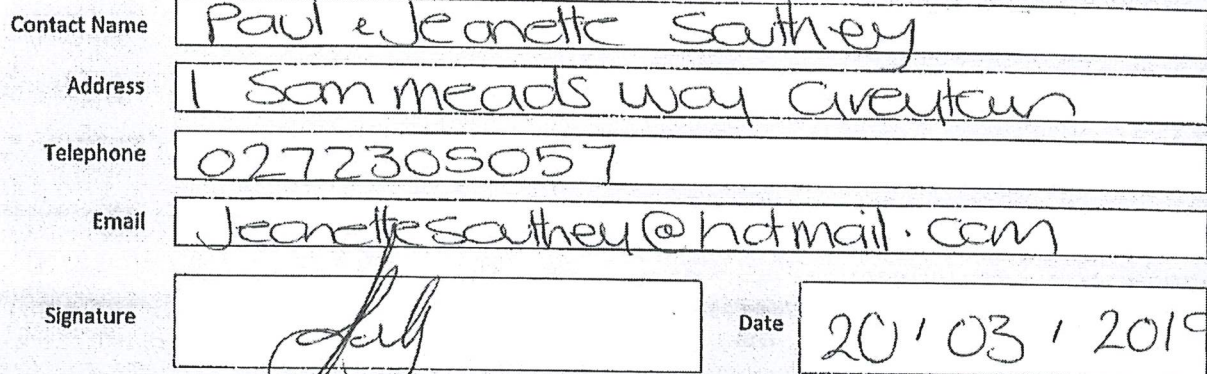 Contact Name Paul & Jeanette Southey
Address 1 Sam meads way Greytown
Telephone 0272305057
Email Jeanettesouthey@hotmail.com
Signature
Date 20/03/2019